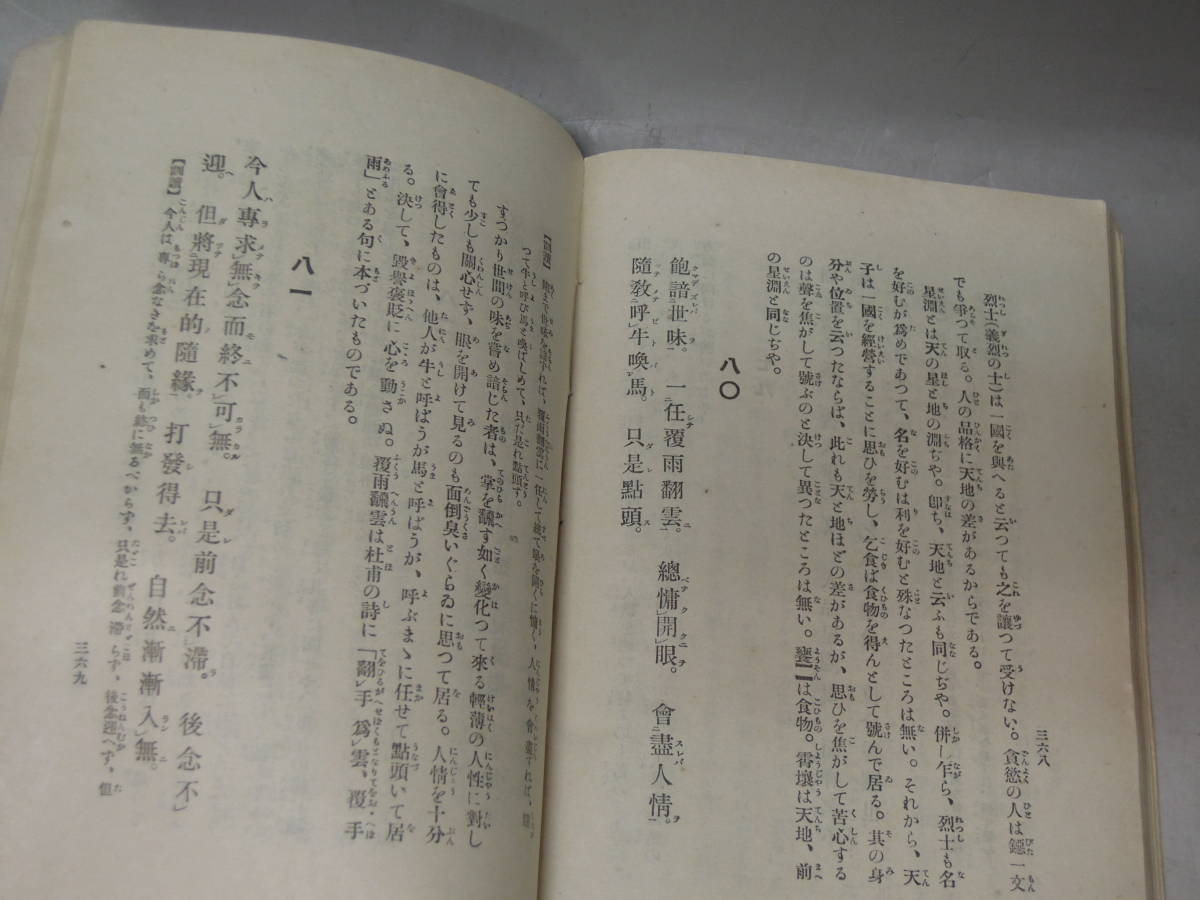 三六八
烈士(義烈の士)は一國を與へると云つても之を讓つて受けない。貪慾の人は鐚一文
でも爭つて取る。人の品格に天地の差があるからである。
星淵とは天の星と地の淵ぢや。卽ち、天地と云ふも同じぢや。併し乍ら、烈士も名
を好むが爲めであつて、名を好むは利を好むと殊なつたところは無い。それから、天
子は一國を經營することに思ひを勞し、乞食は食物を得んとして號んで居る。其の身
分や位置を云つたならば、此れも天と地ほどの差があるが、思ひを焦がして苦心する
のは聲を焦がして號ぶのと決して異つたところは無い。饔飱は食物。霄壤は天地、前
の星淵と同じぢや。
八〇
飽諳世味。一任覆雨翻雲。總慵開眼。會盡人情。
隨敎呼牛喚馬。只是點頭。
【訓讀】飽まで世味を諳ずれば、覆雨翻雲に一任して總て眼を開くに慵く、人情を會盡すれば、隨
つて牛と呼び馬と喚ばしめて、只だ是れ點頭す。
すつかり世間の味を嘗め諳じた者は、掌を飜す如く變化つて來る輕薄の人性に對し
ても少しも關心せず、眼を開けて見るのも面倒臭いぐらゐに思つて居る。人情を十分
に會得したものは、他人が牛と呼ばうが馬と呼ばうが、呼ぶまゝに任せて點頭いて居
る。決して、毀譽褒貶に心を動さぬ。覆雨飜雲は杜甫の詩に「翻手爲雲、覆手
雨」とある句に本づいたものである。
八一
今人專求無念而終不可無。只是前念不滯。後念不
迎。但將現在的隨緣。打發得去。自然漸漸入無。
【訓讀】今人は專ら念なきを求めて、而も終に無るべからず、只是れ前念滯らず、後念迎へず、但
三六九